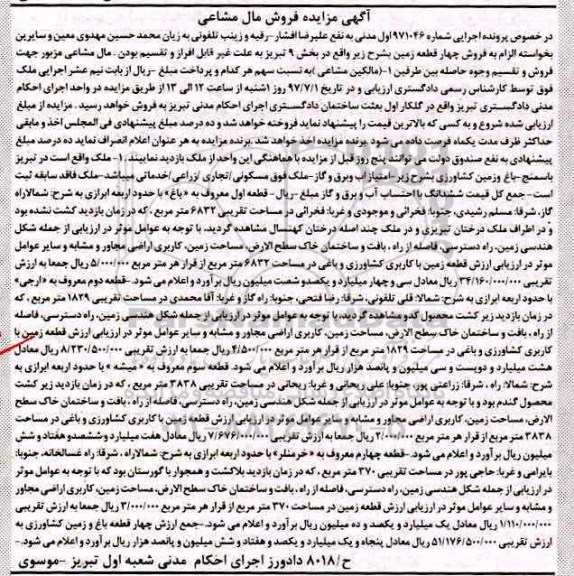 آگهی مزایده فروش مال مشاعی
در خصوص پرونده اجرایی شماره ۹۷۱۰۴۶اول مدنی به نفع علیرضا افشار -رقیه و زینب تلفونی به زیان محمد حسین مهدوی معین و سایرین
بخواسته الزام به فروش چهار قطعه زمین بشرح زیر واقع در بخش ۹ تبریز به علت غیر قابل افراز و تقسیم بودن . مال مشاعی مزبور جهت
فروش و تقسیم وجوه حاصله بین طرفین ۱-(مالکین مشاعی )به نسبت سهم هر کدام و پرداخت مبلغ -ریال از بابت نیم عشر اجرایی ملک
فوق توسط کارشناس رسمی دادگستری ارزیابی و در تاریخ ۹۷/۷/۱ روز ۱شنبه از ساعت 12 الی 13 از طریق مزایده در واحد اجرای احکام
مدنی دادگستری تبریز واقع در گلکار اول بعثت ساختمان دادگستری اجرای احکام مدنی تبریز به فروش خواهد رسید . مزایده از مبلغ
ارزیابی شده شروع و به کسی که بالاترین قیمت را پیشنهاد نماید فروخته خواهد شد و ده درصد مبلغ پیشنهادی فی المجلس اخذ و مابقی
حداکثر ظرف مدت یکماه فرصت داده می شود از برنده مزایده اخذ خواهد شد.برنده مزایده به هر عنوان اعلام انصراف نماید ده درصد مبلغ
پیشنهادی به نفع صندوق دولت می توانند پنج روز قبل از مزایده با هماهنگی این واحد از ملک بازدید نمایند . ۱- ملک واقع است در تبریز
باسمنج-باغ وزمین کشاورزی بشرح زیر-امتیاز اب وبرق و گاز-ملک فوق مسکونی/تجاری /زراعی/خدماتی میباشد-ملک فاقد سابقه ثبت
است- جمع کل قیمت ششدانگ با احتساب آب و برق و گاز مبلغ -ریال- قطعه اول معروف به «باغ» با حدود اربعه ابرازی به شرح: شمالا راه
گاز، شرقا: مسلم رشیدی، جنوبا: فخرائی و موجودی و غربا: فخرائی در مساحت تقریبی ۶۸۳۲ متر مربع ،که در زمان بازدید کشت نشده بود
و در اطراف ملک درختان تبریزی و در ملک چند اصله درختان کهنسال مشاهده گردید، با توجه به عوامل موثر در ارزیابی از جمله شکل
هندسی زمین، راه دسترسی، فاصله از راه ، بافت و ساختمان خاک سطح الارض، مساحت زمین، کاربری اراضی مجاور و مشابه و سایر عوامل
موثر در ارزیابی ارزش قطعه زمین با کاربری کشاورزی و باغی در مساحت ۶۸۳۲ متر مربع از قرار هر متر مربع ۵/۰۰۰/۰۰۰ ریال جمعا به ارزش
تقریبی ۳۴/۱۶۰/۰۰۰/۰۰۰ ریال معادل سی و چهار میلیارد و یکصدو شصت میلیون ریال برآورد و اعلام می شود. -قطعه دوم معروف به «ارجی»
با حدود اربعه ابرازی به شرح: شمالا: قلی تلفونی، شرقا: رضا فتحی، جنوبا: راه گاز و غربا: آقا محمدی در مساحت تقریبی ۱۸۲۹ متر مربع ، که
در زمان بازدید زیر کشت محصول کدو مشاهده گردید، با توجه به عوامل موثر در ارزیابی از جمله شکل هندسی زمین، راه دسترسی، فاصله
از راه ، بافت و ساختمان خاک سطح الارض، مساحت زمین، کاربری اراضی مجاور و مشابه و سایر عوامل موثر در ارزیابی ارزش قطعه زمین با
کاربری کشاورزی و باغی در مساحت ۱۸۲۹ متر مربع از قرار هر متر مربع ۴/۵۰۰/۰۰۰ ریال جمعا به ارزش تقریبی ۸/۲۳۰/۵۰۰/۰۰۰ ریال معادل
هشت میلیارد و دویست و سی میلیون و پانصد هزار ریال برآورد و اعلام می شود. قطعه سوم معروف به «میشه » با حدود اربعه ابرازی به
شرح: شمالا: راه ، شرقا: زراعتی پور، جنوبا: علی ریحانی و غربا: ریحانی در مساحت تقریبی ۳۸۳۸ متر مربع ، که در زمان بازدید زیر کشت
محصول گندم بود و با توجه به عوامل موثر در ارزیابی از جمله شکل هندسی زمین، راه دسترسی، فاصله از راه ، بافت و ساختمان خاک سطح
الارض، مساحت زمین، کاربری اراضی مجاور و مشابه و سایر عوامل موثر در ارزیابی ارزش قطعه زمین با کاربری کشاورزی و باغی در مساحت
۳۸۳۸ متر مربع از قرار هر متر مربع ۲/۰۰۰/۰۰۰ ریال جمعا به ارزش تقریبی ۷/۶۷۶/۰۰۰/۰۰۰ ریال معادل هفت میلیارد و ششصد و هفتاد و شش
میلیون ریال برآورد و اعلام می شود. -قطعه چهارم معروف به «خرمنلر» با حدود اربعه ابرازی به شرح: شمالا راه ، شرقا: راه غسالخانه، جنوبا:
بایرامی و غربا: حاجی پور در مساحت تقریبی ۳۷۰ متر مربع ، که در زمان بازدید بلاکشت و همجوار با گورستان بود که با توجه به عوامل موثر
در ارزیابی از جمله شکل هندسی زمین، راه دسترسی، فاصله از راه ، بافت و ساختمان خاک سطح الارض، مساحت زمین، کاربری اراضی مجاور
و مشابه و سایر عوامل موثر در ارزیابی ارزش قطعه زمین در مساحت ۳۷۰ متر مربع از قرار هر متر مربع ۳/۰۰۰/۰۰۰ ریال جمعا به ارزش تقریبی
۱/۱۱۰/۰۰۰/۰۰۰ ریال معادل یک میلیارد و یکصد و ده میلیون ریال برآورد و اعلام می شود. -جمع ارزش چهار قطعه باغ و زمین کشاورزی به
ارزش تقریبی ۵۱/۱۷۶/۵۰۰/۰۰۰ ریال معادل پنجاه و یک میلیارد و یکصد و هفتاد و شش میلیون و پانصد هزار ریال برآورد و اعلام می شود.-
ح/۸۰۱۸ دادورز اجرای احکام مدنی شعبه اول تبریز -موسوی